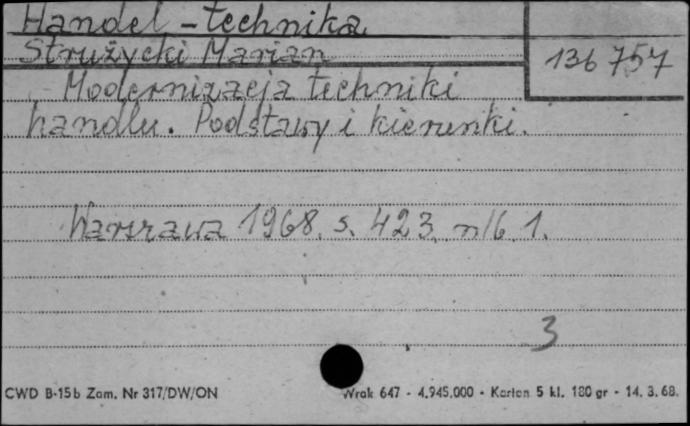 Handel - technika
Strużycki Marian
136 757
Modernizacja techniki
handlu. Podstawy i kierunki.
Warszawa 1968. s. 423. nlb 1.
3
CWD B-15b Zam. Nr 317/DW/ON
Wrak 647 - 4.945.000 - Karton 5 kl. 180 gr - 14. 3. 68.